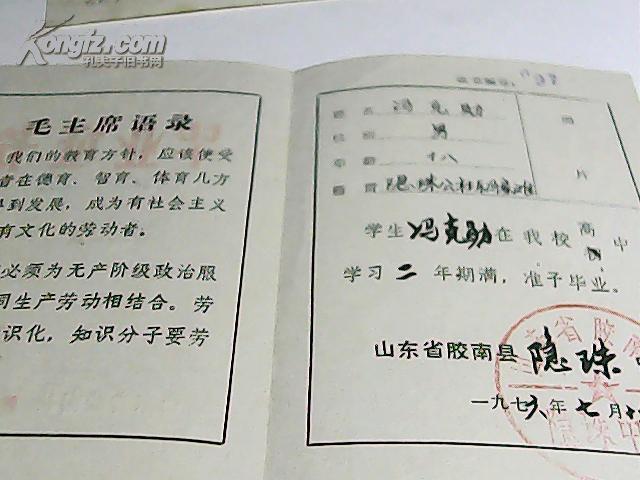 Kongfz.com
孔夫子旧书网
毛主席语录
我们的教育方针，应该使受
者在德育、智育、体育几方
得到发展，成为有社会主义
有文化的劳动者。
必须为无产阶级政治服
同生产劳动相结合。劳
识化，知识分子要劳
姓名 冯克勋
性别 男
年龄 十八
隐珠公社
照
片
学生冯克勋在我校高中
学习二年期满，准予毕业。
山东省胶南县隐珠
一九七六年七月十
省胶
隐珠中